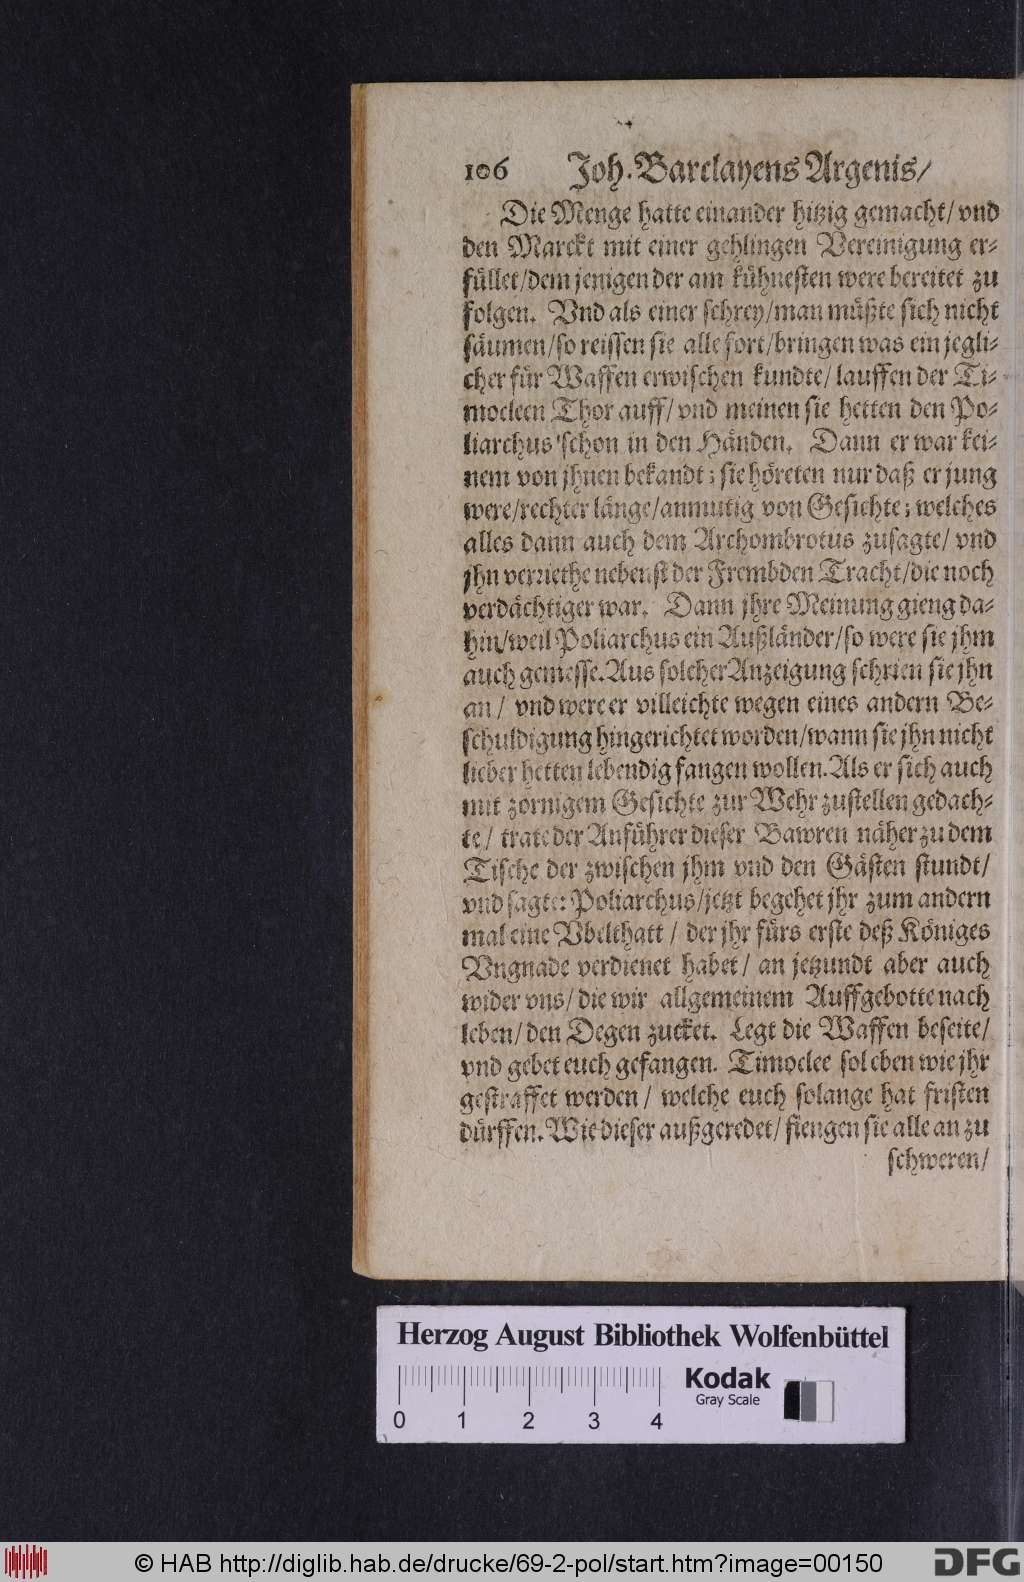 106 Joh. Barclayens Argenis/
Die Menge hatte einander hitzig gemacht/ vnd
den Marckt mit einer gehlingen Vereinigung er-
füllet/dem jenigen der am kühnesten were bereitet zu
folgen. Vnd als einer schrey/man müßte sich nicht
säumen/so reissen sie alle fort/bringen was ein jegli-
cher für Waffen erwischen kundte/ lauffen der Ti-
mocleen Thor auff/ vnd meinen sie hetten den Po-
liarchus schon in den Händen. Dann er war kei-
nem von jhnen bekandt; sie höreten nur daß er jung
were/rechter länge/anmutig von Gesichte; welches
alles dann auch dem Archombrotus zusagte/ vnd
jhn verriethe nebenst der Frembden Tracht/die noch
verdächtiger war. Dann jhre Meinung gieng da-
hin/weil Poliarchus ein Außländer/so were sie jhm
auch gemesse. Aus solcher Anzeigung schrien sie jhn
an/ vnd were er villeichte wegen eines andern Be-
schuldigung hingerichtet worden/wann sie jhn nicht
lieber hetten lebendig fangen wollen. Als er sich auch
mit zornigem Gesichte zur Wehr zustellen gedach-
te/ trate der Anführer dieser Bawren näher zu dem
Tische der zwischen jhm vnd den Gästen stundt/
vnd sagte: Poliarchus/jetzt begehet jhr zum andern
mal eine Vbelthatt/ der jhr fürs erste deß Königes
Vngnade verdienet habet/ an jetzundt aber auch
wider vns/ die wir allgemeinem Auffgebotte nach
leben/ den Degen zucket. Legt die Waffen beseite/
vnd gebet euch gefangen. Timoclee sol eben wie jhr
gestraffet werden/ welche euch solange hat fristen
dürffen. Wie dieser außgeredet/ fiengen sie alle an zu
schweren/
Herzog August Bibliothek Wolfenbüttel
Kodak
Gray Scale
0 1 2 3 4
© HAB http://diglib.hab.de/drucke/69-2-pol/start.htm?image=00150
DFG